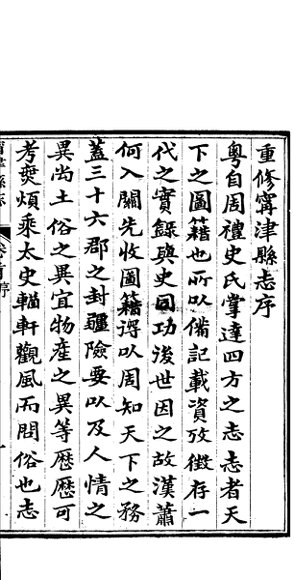 重修寗津縣志序
粤自周禮史氏掌達四方之志志者天
下之圖籍也所以備記載資攷徴存一
代之實錄與史同功後世因之故漢蕭
何入關先收圖籍得以周知天下之務
蓋三十六郡之封疆險要以及人情之
異尚土俗之異宜物產之異等歷歷可
考奭煩乘太史輶軒觀風而問俗也志